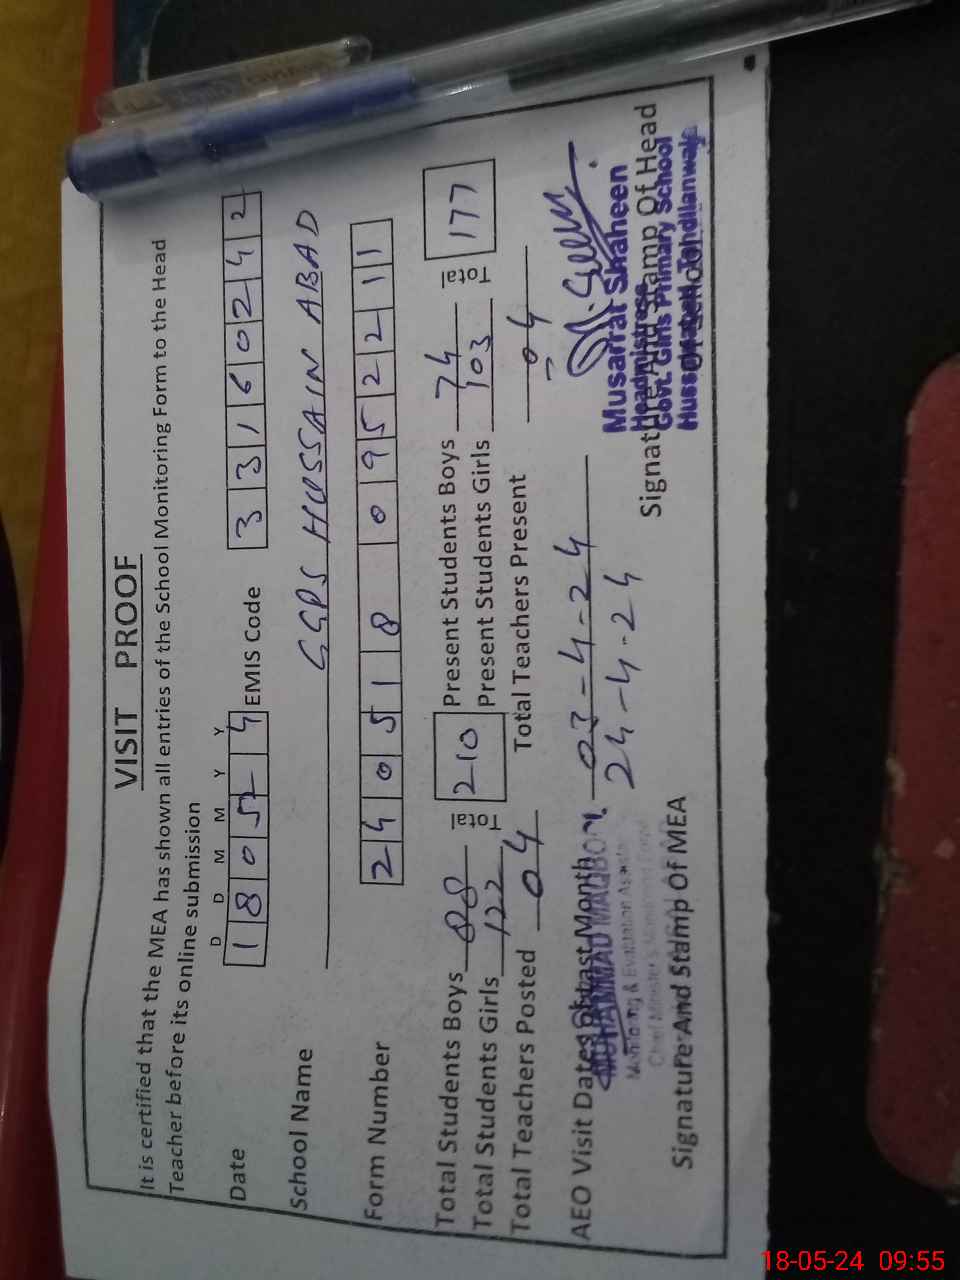 VISIT PROOF
It is certified that the MEA has shown all entries of the School Monitoring Form to the Head
Teacher before its online submission
D D M M Y Y
Date 1 8 0 5 2 4 EMIS Code 3 3 1 6 0 2 4 2
School Name GGPS HUSSAIN ABAD
Form Number 2 4 0 5 1 8 0 9 5 2 2 1 1
Total Students Boys 88 Total 210 Present Students Boys 74 Total 177
Total Students Girls 122 Present Students Girls 103
Total Teachers Posted 04 Total Teachers Present 04
AEO Visit Dates of Last Month 03-4-24
24-4-24
MUHAMMAD MAQBOOL
Monitoring & Evaluation Assistant
Chief Minister's Monitoring Force
Signature And Stamp Of MEA
Musarrat Shaheen
Headmistress
Govt. Girls Primary School
Signature And Stamp Of Head
Of School
18-05-24 09:55